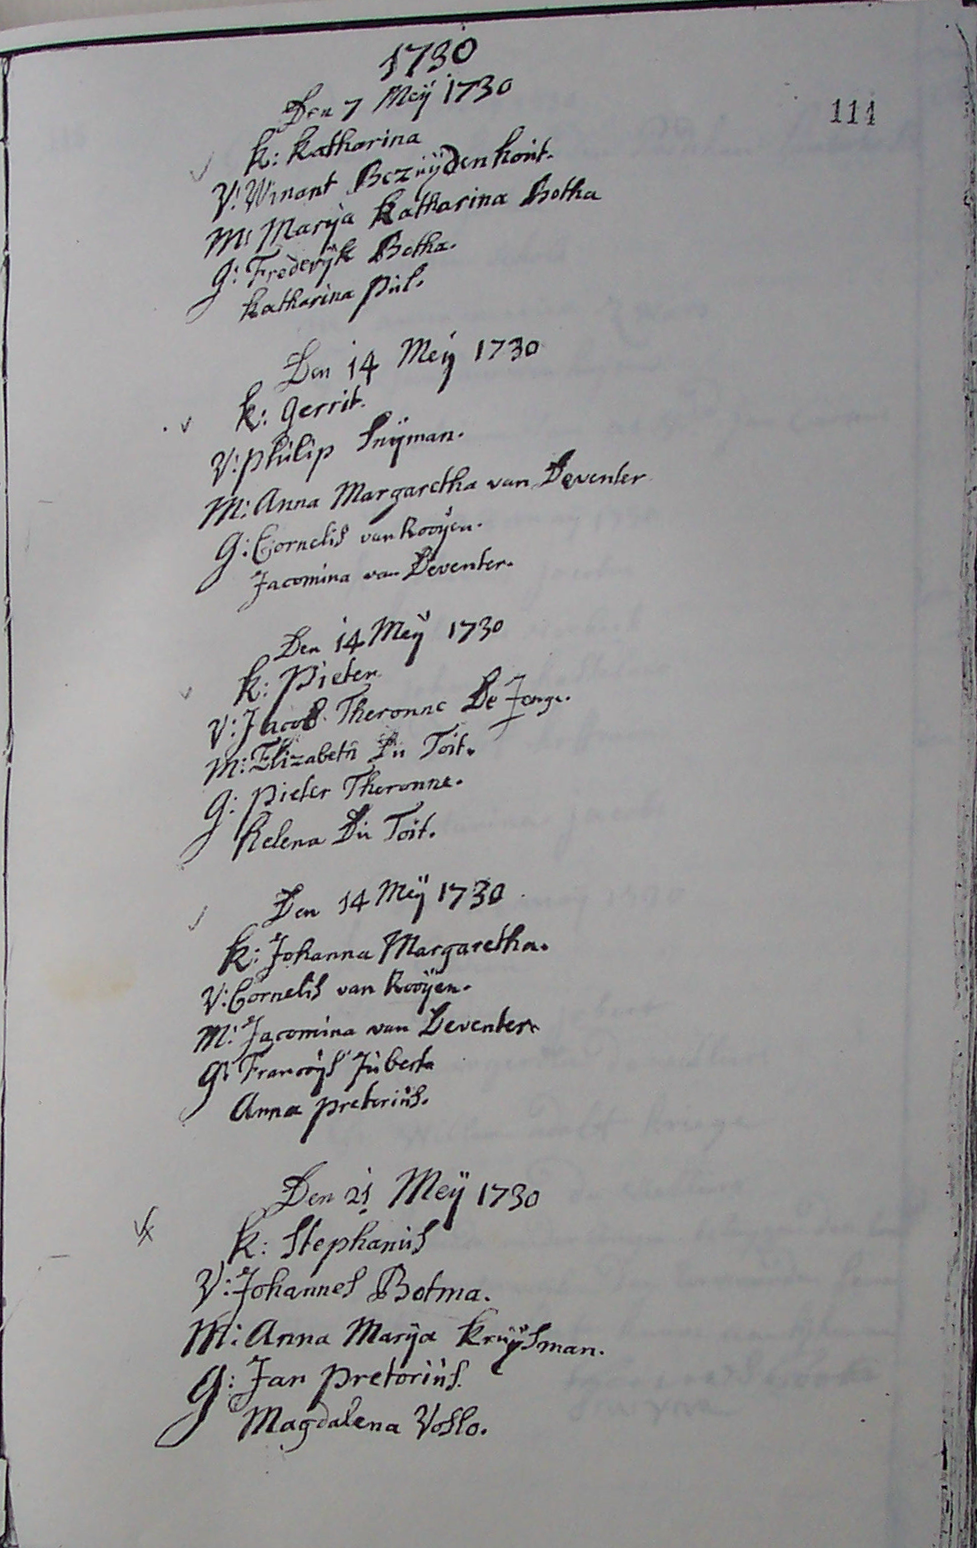 1730
111
Den 7 Meÿ 1730
K: Katharina
V: Winant Bezuÿdenhout.
M: Marÿa Katharina Botha
G: Frederÿk Botha.
Katharina Pül.
Den 14 Meÿ 1730
K: Gerrit.
V: Philip Snÿman.
M: Anna Margaretha van Deventer
G: Cornelis van Rooÿen.
Jacomina van Deventer.
Den 14 Meÿ 1730
K: Pieter
V: Jacob Theronne De Jonge.
M: Elizabeth Du Toit.
G: Pieter Theronne.
Helena Du Toit.
Den 14 Meÿ 1730
K: Johanna Margaretha.
V: Cornelis van Rooÿen.
M: Jacomina van Deventer
G: Francoÿs Juberta
Anna Pretorius.
Den 21 Meÿ 1730
K: Stephanus
V: Johannes Botma.
M: Anna Marÿa Kruÿsman.
G: Jan Pretorius.
Magdalena Voslo.